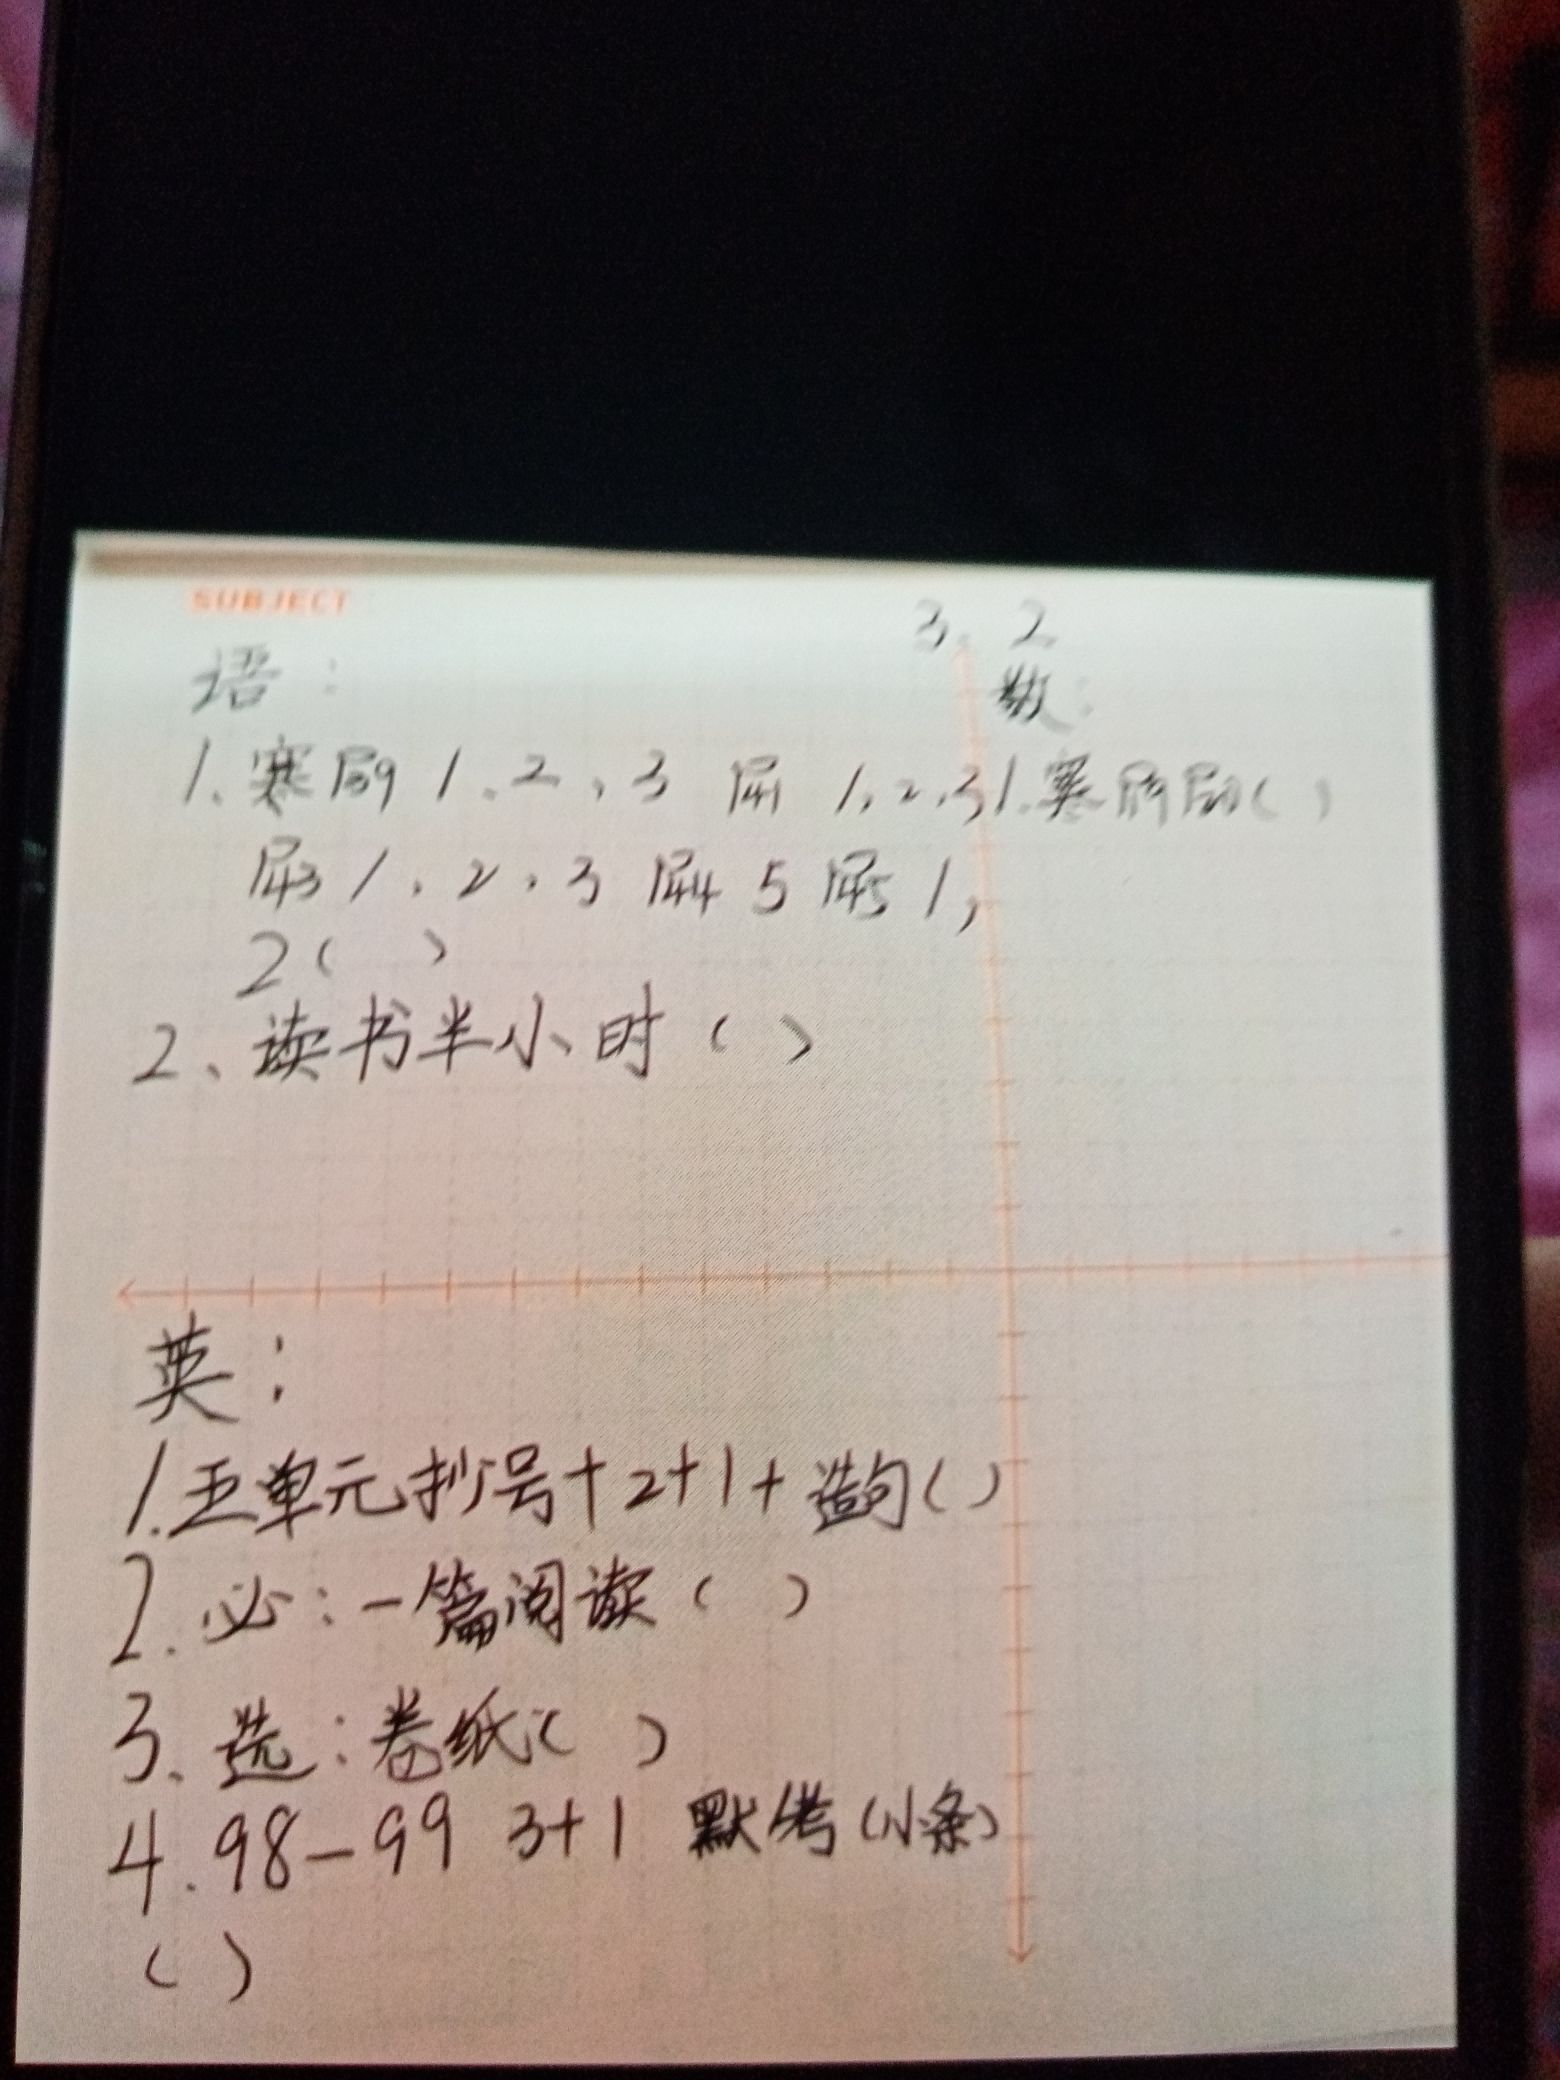 SUBJECT
3.2
语：
1.寒 1.2,3 1.2.3
1.2.3 5 1,
2( )
2、读书半小时( )
数:
1.寒 ( )
英：
1.五单元抄号+2+1+造句( )
2.必：一篇阅读( )
3.选：卷纸( )
4.98-99 3+1 默 (小条)
( )